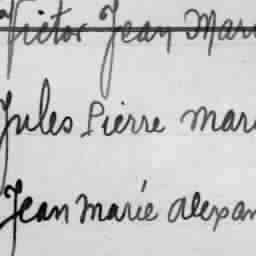 Victor Jean Mari
Jules Pierre Mari
Jean Marie Alexan